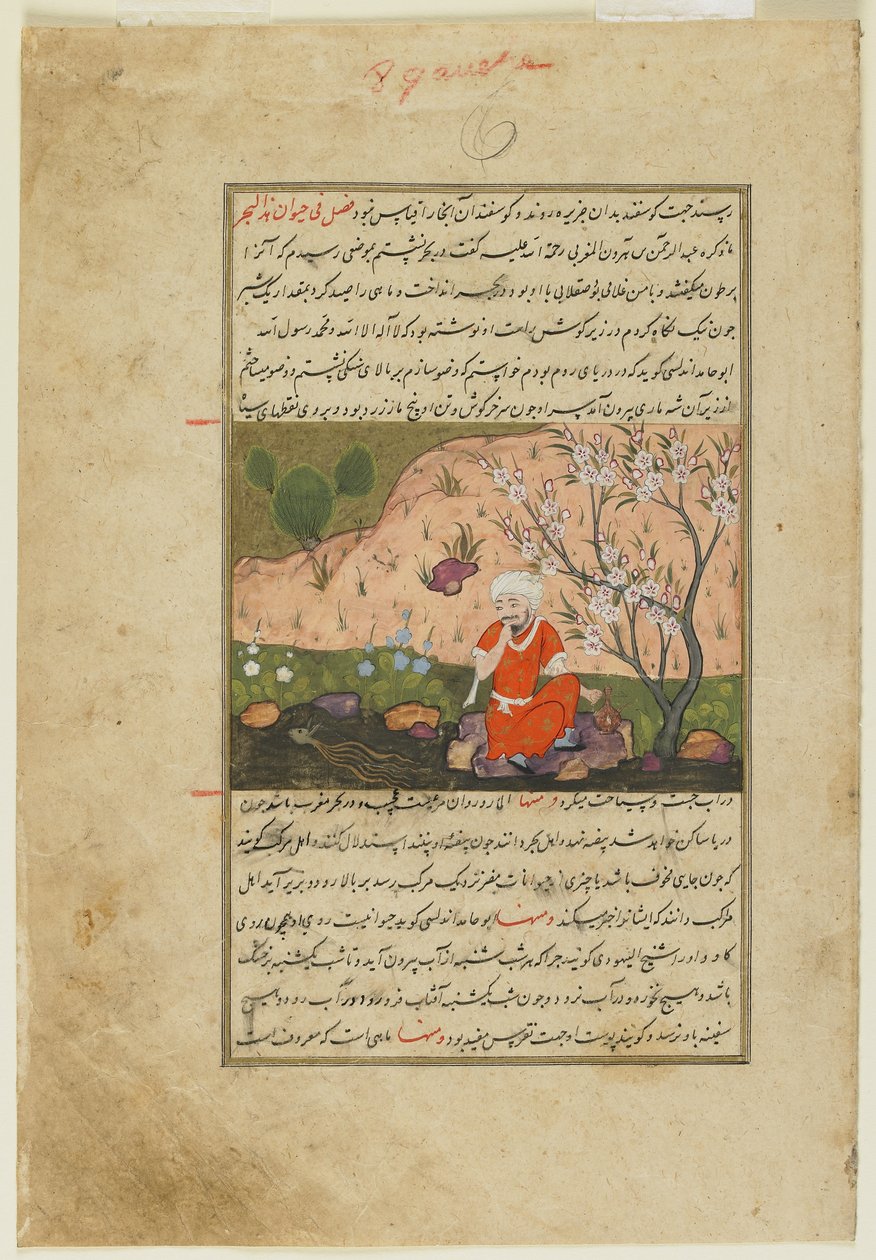 8 gauche
رسند جهت کوسفند بدان جزیره روند و کوسفندان آنجا را قیاس نبود فصل فی حیوان هذا البحر
ما ذکره عبد الرحمن بن هرون المغربی رحمة الله علیه کفت در بحر نشستم بموضعی رسیدم که آنرا
برطون میکفتند و با من غلامی بود صقلابی با او بود در بحر انداخت و ماهی را صید کرد بمقدار یک شبر
جون نیک نکاه کردم در زیر کوش راست او نوشته بود که لا اله الا الله و محمد رسول الله
ابو حامد اندلسی کوید که در دریای روم بودم خواستم که وضو سازم بر بالای سنکی نشستم و وضو میساختم
از زیر آن ماری بیرون آمد سر او جون سر خرکوش و تن او زرد بود و بروی نقطهای سیاه
در آب جست و سیاحت میکرد و منها مرغیست عجیب و در بحر مغرب باشد جون
دریا ساکن خواهد شد بیضه نهد و اهل بحر دانند جون بیضه او بینند استدلال کنند و اهل مرکب کویند
که جون جایی مخوف باشد یا چیزی از حیوانات نزدیک مرکب رسد بر بالا رود و بزیر آید اهل
مرکب دانند که ایشانرا خبر میکند و منها ابو حامد اندلسی کوید حیوانیست روی او همچون روی
کاو و او را شیخ الیهودی کویند جرا که هر شب شنبه از آب بیرون آید و تا شب یکشنبه بر خشک
باشد و هیچ نخورد و در آب نرود و جون شب یکشنبه آفتاب فرو رود در آب رود و هیچ
سفینه باو نرسد و کویند پوست او جهت نقرس مفید بود و منها ماهی است که معروف است